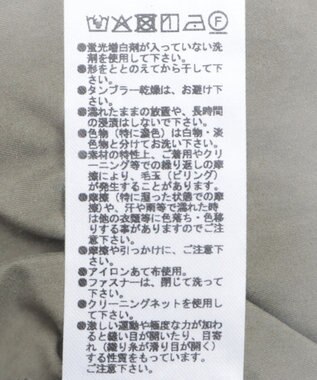 ●蛍光増白剤が入っていない洗
剤を使用して下さい。
●形をととのえてから干して下
さい。
●タンブラー乾燥は、お避け下
さい。
●濡れたままの放置や、長時間
の浸漬はしないで下さい。
●色物(特に濃色)は白物・淡
色物と分けてお洗い下さい。
●素材の特性上、ご着用やクリ
ーニング等での繰り返しの摩
擦により、毛玉(ピリング)
が発生することがあります。
●摩擦(特に湿った状態での摩
擦)や、汗や雨等で濡れた時
は他の衣類等に色落ち・色移
りする事がありますのでご注
意下さい。
●摩擦や引っかけに、ご注意下
さい。
●アイロンあて布使用。
●ファスナーは、閉じて洗って
下さい。
●クリーニングネットを使用し
て下さい。
●激しい運動や極度な力が加わ
ると縫い目が開いたり、目寄
れ(織り糸が滑り目が開く)
する性質をもっています。
ご注意下さい。